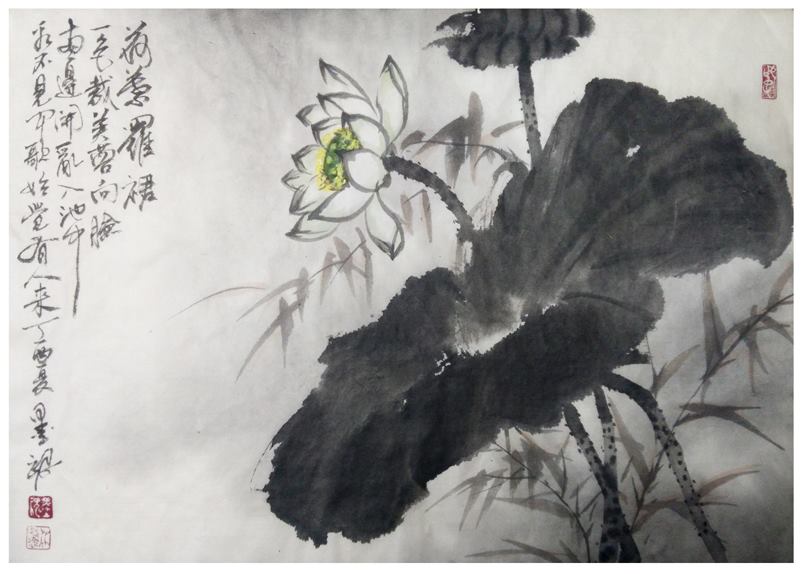 荷葉羅裙
一色裁芙蓉向臉
两邊開亂入池中
看不見闻歌始觉有人来丁酉夏墨